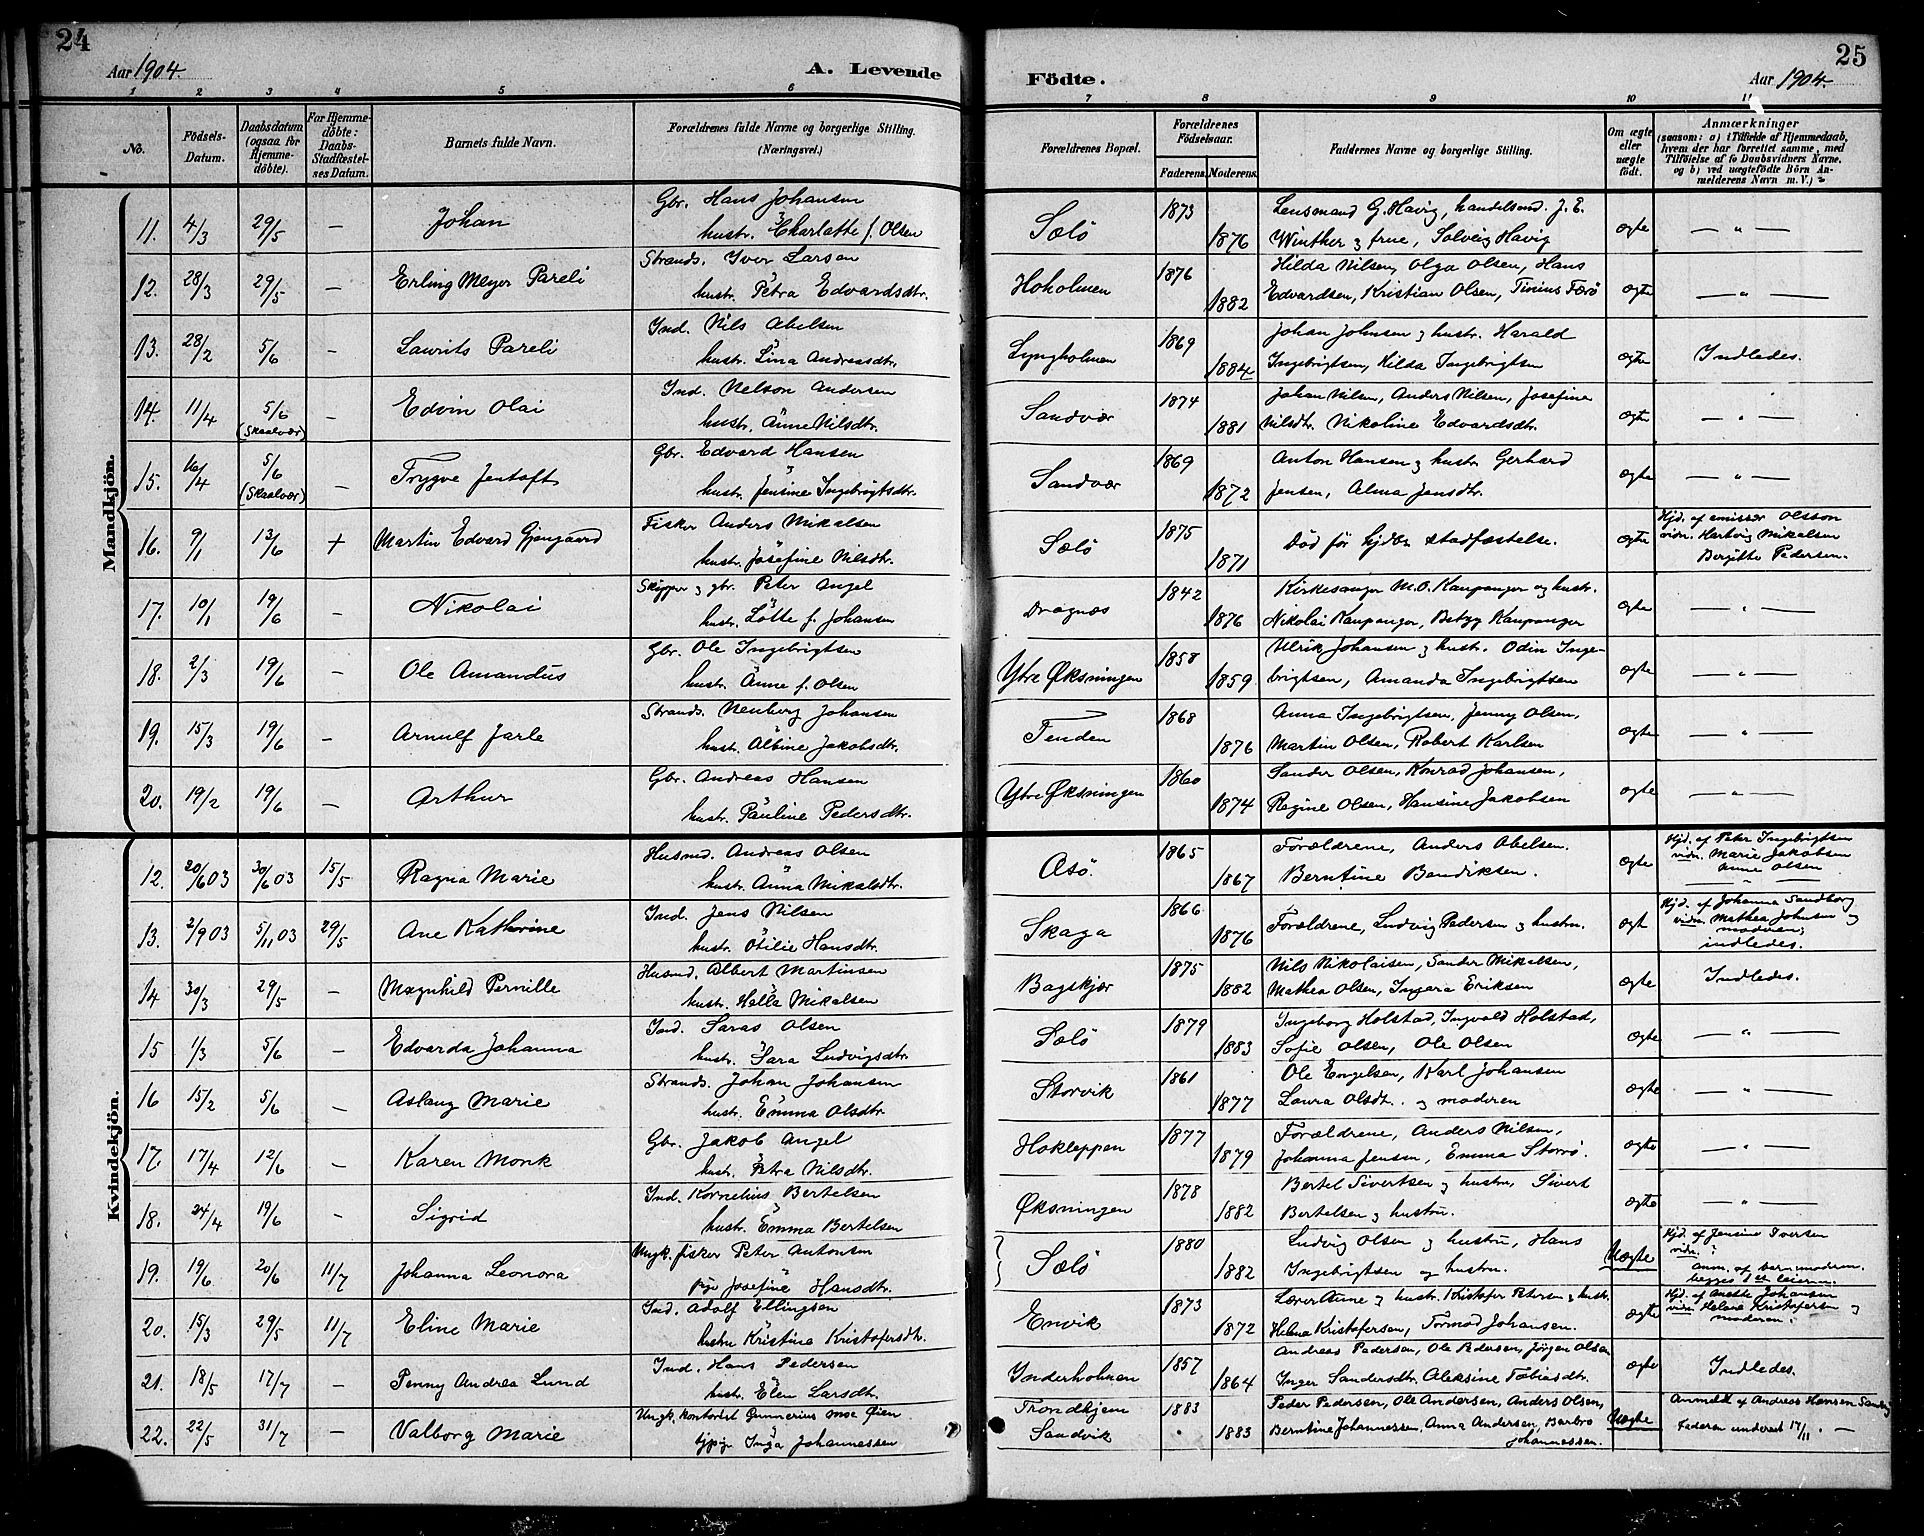 24
Aar 1904.
A. Levende
1 2 3 4 5 6
No.
Födsels-Datum.
Daabsdatum (ogsaa for Hjemme-döbte).
For Hjemme-döbte: Daabs-Stadfæstel-ses Datum.
Barnets fulde Navn.
Forældrenes fulde Navne og borgerlige Stilling. (Næringsvei.)
Födte.
Aar 1904.
25
7 8 9 10 11
Forældrenes Bopæl.
Forældrenes Födselsaar.
Faderens. Moderens.
Faddernes Navne og borgerlige Stilling.
Om ægte eller uægte födt.
Anmærkninger
(saasom: a) i Tilfælde af Hjemmedaab,
hvem der har forrettet samme, med
Tilföielse af to Daabsvidners Navne.
og b) ved uægtefödte Börn An-
melderens Navn m. V.)
Mandkjön.
11. 4/3 29/5 — Johan Gbr. Hans Johansen
hustr. Charlotte f. Olsen
Sølø 1873 1876 Lensmand G. Havig, handelsmd. J. E.
Winther & frue, Solveig Havig ægte — " —
12. 28/3 29/5 — Erling Meyer Pareli Strands. Iver Larsen
hustr. Petra Edvardsdtr.
Hoholmen 1876 1882 Hilda Nilsen, Olga Olsen, Hans
Edvardsen, Kristian Olsen, Tinius Færø ægte — " —
13. 28/2 5/6 — Laurits Pareli Ind. Nils Abelsen
hustr. Lina Andreasdtr.
Lyngholmen 1869 1884 Johan Johnsen & hustr. Harald
Ingebrigtsen, Hilda Ingebrigtsen ægte Indledes.
14. 11/4 5/6 (Skaalvær) — Edvin Olai Ind. Nelson Andersen
hustr. Anne Nilsdtr.
Sandvær 1874 1881 Johan Nilsen, Anders Nilsen, Josefine
Nilsdtr. Nikoline Edvardsdtr. ægte — " —
15. 16/4 5/6 (Skaalvær) — Trygve Jentoft Gbr. Edvard Hansen
hustr. Jensine Ingebrigtsdtr.
Sandvær 1869 1872 Anton Hansen & hustr Gerhard
Jensen, Alma Jensdtr. ægte — " —
16. 9/1 13/6 + Martin Edvard Gjengaard Fisker Anders Mikalsen
hustr. Josefine Nilsdtr.
Sølø 1875 1871 Død før hjdbs stadfæstelse. ægte Hjd. af emissær Olsson
vidn. Hartvig Mikalsen
Bergitte Pedersen.
17. 10/1 19/6 — Nikolai Skipper & gbr. Peter Angel
hustr. Lotte f. Johansen
Dragnæs 1842 1876 Kirkesanger M.O. Kaupanger og hustr.
Nikolai Kaupanger, Betzy Kaupanger ægte — " —
18. 2/3 19/6 — Ole Amandus Gbr. Ole Ingebrigtsen
hustr. Anne f. Olsen
Ytre Øksningen 1858 1859 Ulrik Johansen & hustr. Odin Inge-
brigtsen, Amanda Ingebrigtsen ægte — " —
19. 15/3 19/6 — Arnulf Jarle Strands. Neuberg Johansen
hustr. Albine Jakobsdtr.
Tenden 1868 1876 Anna Ingebrigtsen, Jenny Olsen,
Martin Olsen, Robert Karlsen ægte — " —
20. 19/2 19/6 — Arthur Gbr. Andreas Hansen
hustr. Pauline Pedersdtr.
Ytre Øksningen 1860 1874 Sander Olsen, Konrad Johansen,
Regine Olsen, Hansine Jakobsen ægte — " —
Kvindekjön.
12. 20/6 03 30/6 03 15/5 Ragna Marie Husmd. Andreas Olsen
hustr. Anna Mikalsdtr.
Asø 1865 1867 Forældrene, Anders Abelsen.
Berntine Bendiksen. ægte Hjd. af Peter Ingebrigtsen
vidn. Marie Jakobsen
Anne Olsen
13. 2/9 03 5/11 03 29/5 Ane Kathrine Ind. Jens Nilsen
hustr. Otilie Hansdtr.
Skaga 1866 1876 Forældrene, Ludvig Pedersen & hustru. ægt Hjd. af Johanna Sandberg
vidn. Mathea Johnsen og
moderen;
indledes.
14 30/3 29/5 — Magnhild Pernille Husmd. Albert Martinsen
hustr. Hella Mikalsen
Bagskjær 1875 1882 Nils Nikolaisen, Sander Mikalsen,
Mathea Olsen, Ingara Eriksen ægte Indledes.
15 1/3 5/6 — Edvarda Johanna Ind. Saras Olsen
hustr. Sara Ludvigsdtr.
Sølø 1879 1883 Ingeborg Holstad, Ingvald Holstad,
Sofie Olsen, Ole Olsen ægte — " —
16 15/2 5/6 — Aslaug Marie Strands. Johan Johansen
hustr. Emma Olsdtr.
Storvik 1861 1877 Ole Engelsen, Karl Johansen
Laura Olsdt. og moderen ægte — " —
17. 17/4 12/6 — Karen Monk Gbr. Jakob Angel
hustr. Petra Nilsdtr.
Hokleppen 1877 1879 Forældrene, Anders Nilsen,
Johanna Jensen, Emma Storrø. ægte — " —
18. 24/4 19/6 — Sigrid Ind. Kornelius Bertelsen
hustr. Emma Bertelsen
Øksningen 1878 1882 Bertel Sivertsen & hustru, Sivert
Bertelsen & hustru. ægte — " —
19. 19/6 20/6 11/7 Johanna Leonora Ungk. fisker Peter Antonsen
pige Josefine Hansdtr.
Sølø 1880 1882 Ludvig Olsen og hustru, Hans
Ingebrigtsen og hustru. Uægte Hjd. af Jensine Iversen
vidn. "
anm. af barnemoderen.
begges 1ste leierm.
20. 15/3 29/5 11/7 Eline Marie Ind. Adolf Ellingsen
hustru Kristina Kristofersdtr.
Envik 1873 1872 Lærer Aune & hustr. Kristofer Petersen & hustr.
Helena Kristofersen, Tormod Johansen. ægte Hjd. af Anette Johansen
vidn. Helene Kristofersen og
moderen.
21. 18/5 17/7 — Penny Andrea Lund Ind. Hans Pedersen
hustr. Elen Larsdtr.
Inderholmen 1857 1864 Andreas Pedersen, Ole Pedersen, Jørgen Olsen
Inger Sandersdtr. Aleksine Tobiasdtr. ægte Indledes.
22. 22/5 31/7 — Valborg Marie Ungk. kontorist Gunnerius Moe Øien
tjpge Inga Johannessen
Trondhjem
Sandvik 1883 1883 Peder Pedersen, Ole Andersen, Anders Olsen,
Berntine Johannessen, Anna Andersen, Barbro
Johannessen. Uægte Anmeldt af Andreas Hansen Sandvig
Faderen underret 17/11. —